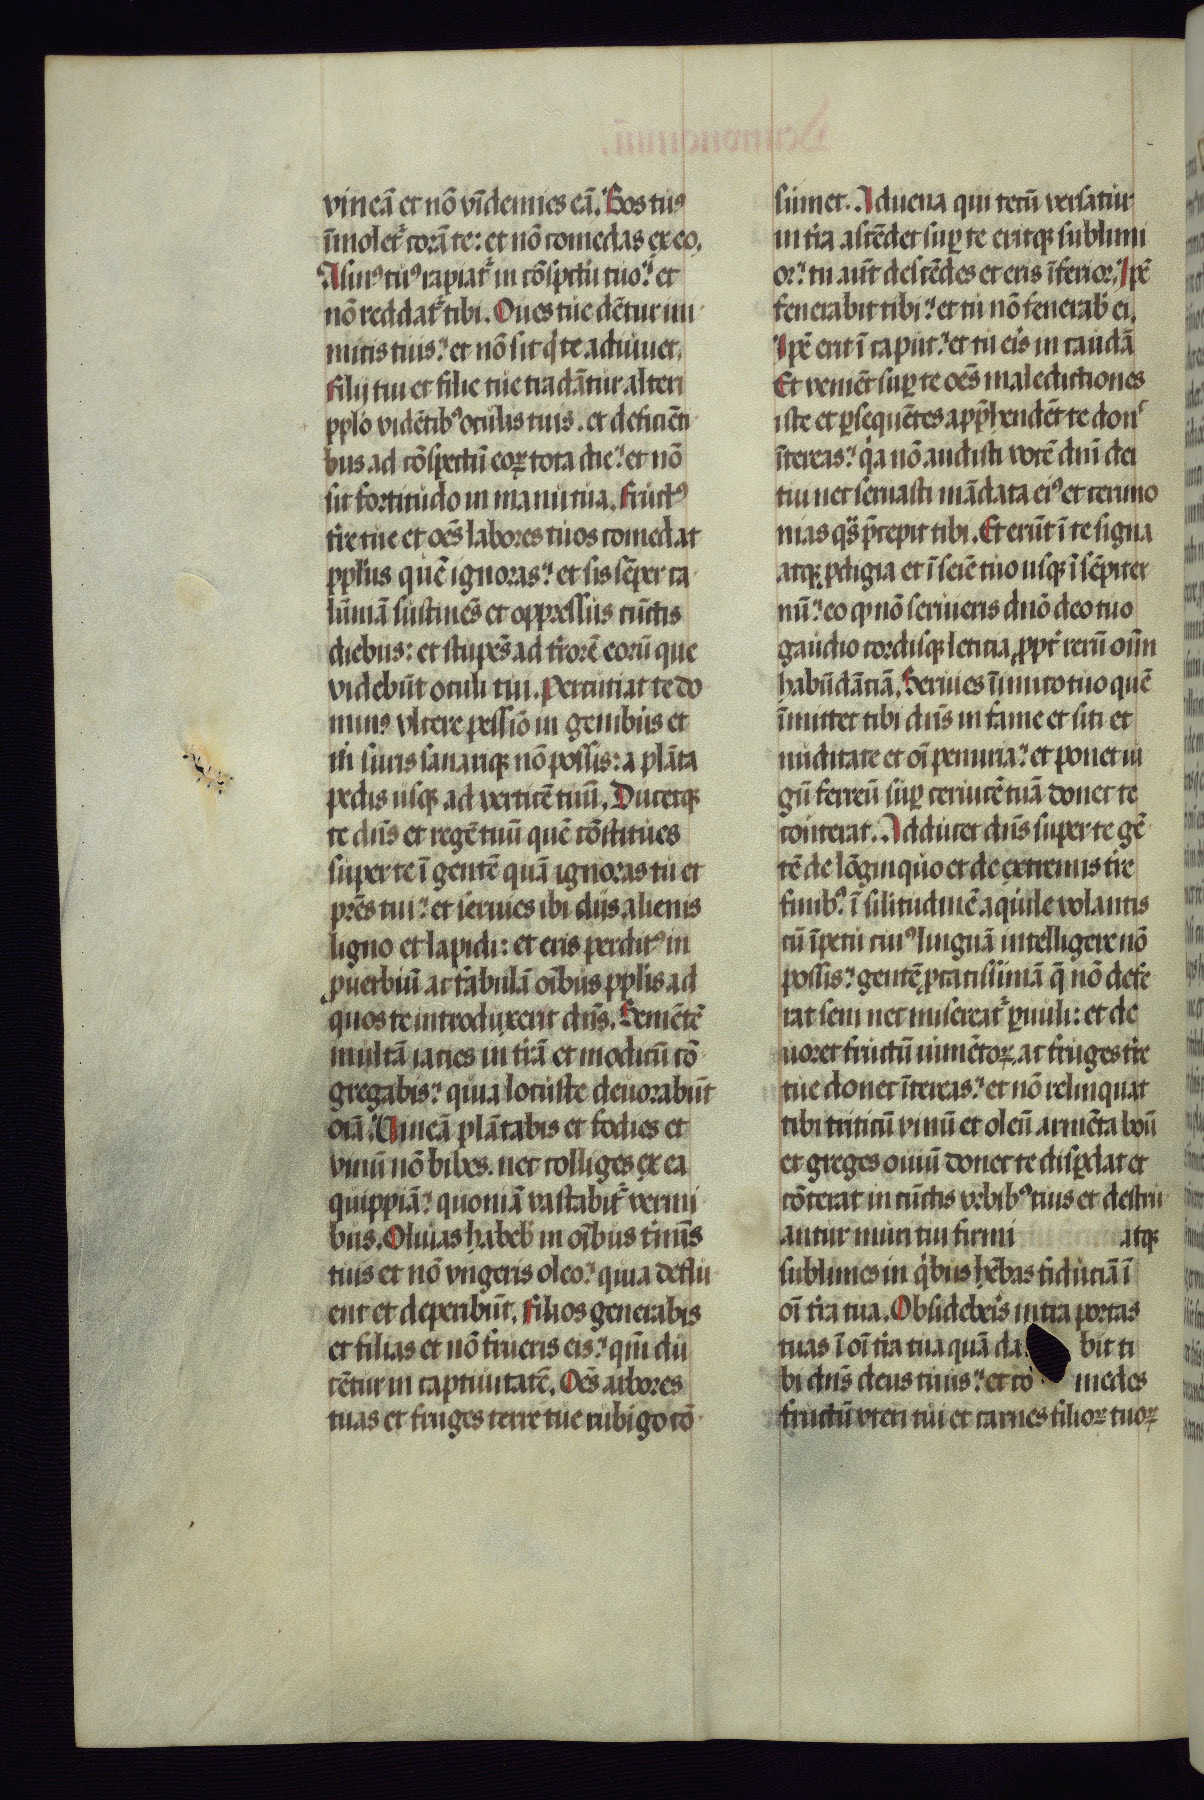 vineā et nō vīdemies eā. Bos tuꝰ
īmolet᷑ corā te: et nō comedas ex eo.
Asinꝰ tuꝰ rapiat᷑ in cōspctu tuo: et
nō reddat᷑ tibi. Oues tue dētur ini
micis tuis: et nō sit q̇ te adiuuet.
Filij tui et filie tue tradātur alteri
pplo vidētibꝰ oculis tuis. et deficiēti
bus ad cōspectū eoꝝ tota die: et nō
sit fortitudo in manu tua. Fructꝰ
tr̄e tue et oēs labores tuos comedat
ppl̄us quē ignoras: et sis sēper ca
lūniā sustinēs et oppressus cūctis
diebus: et stupēs ad t̄rorē eorū que
videbūt oculi tui. Percutiat te do
minꝰ vlcere pessiō in genibus et
in suris sanariqꝫ nō possis: a plāta
pedis usqꝫ ad verticē tuū. Ducetqꝫ
te dn̄s et regē tuū quē cōstitues
super te ī gentē quā ignoras tu et
prēs tui: et seruies ibi diis alienis
ligno et lapidi: et eris perditꝰ in
ꝓuerbiū ac fabulā oībus pplis ad
quos te introduxerit dn̄s. Semētē
multā iacies in tr̄ā et modicū cō
gregabis: quia locuste deuorabūt
oīā. Vineā plātabis et fodies et
vinū nō bibes. nec colliges ex ea
quippiā: quoniā vastabit᷑ vermi
bus. Oliuas habeb̄ in oībus t̄mīs
tuis et nō vngeris oleo: quia deflu
ent et deperibūt. Filios generabis
et filias et nō frueris eis: qm̄ du
cētur in captiuitatē. Oēs arbores
tuas et fruges terre tue rubigo cō
sumet. Aduena qui tecū versatur
in tr̄a ascēdet suꝑ te eritqꝫ sublimi
or: tu aūt descēdes et eris īferior. Ipē
fenerabit tibi: et tu nō fenerab̄ ei.
Ipē erit ī caput: et tu eīs in caudā
Et veniēt suꝑ te oēs maledictiones
iste et ꝑsequētes appr̄hendēt te don
ītereas: q̇a nō audisti vocē dn̄i dei
tui nec seruasti mādata eiꝰ et cerimo
nias qs̄ p̄cepit tibi. Et erūt ī te signa
atqꝫ ꝓdigia et ī seīe tuo usqꝫ ī sēpiter
nū: eo ꝙ nō seruieris dn̄o deo tuo
gaudio cordisqꝫ leticia ꝓpt̄ rerū oīm
habūdātiā. Seruies īimico tuo quē
īmittet tibi dn̄s in fame et siti et
nuditate et oī penuria: et ponet iu
gū ferreū suꝑ ceruicē tuā donec te
conterat. Adducet dn̄s super te gē
tē de lōginquo et de extremis tr̄e
finibꝰ: ī silitudinē aquile volantis
cū īpetu cuiꝰ linguā intelligere nō
possis: gentē ꝓcacissimā q̄ nō defe
rat seni nec misereat᷑ ꝑuuli: et de
uoret fructū iumētoꝝ. ac fruges tr̄e
tue donec ītereas: et nō relinquat
tibi triticū vinū et oleū armēta boū
et greges ouiū donec te disꝑdat et
cōterat in cūctis vrbibꝰ tuis et destru
antur muri tui firmi atqꝫ
sublimes in q̇bus hēbas fiduciā ī
oī tr̄a tua. Obsideberis intra portas
tuas ī oī tr̄a tua quā da bit ti
bi dn̄s deus tuus: et co medes
fructū vteri tui et carnes filioꝝ tuoꝝ